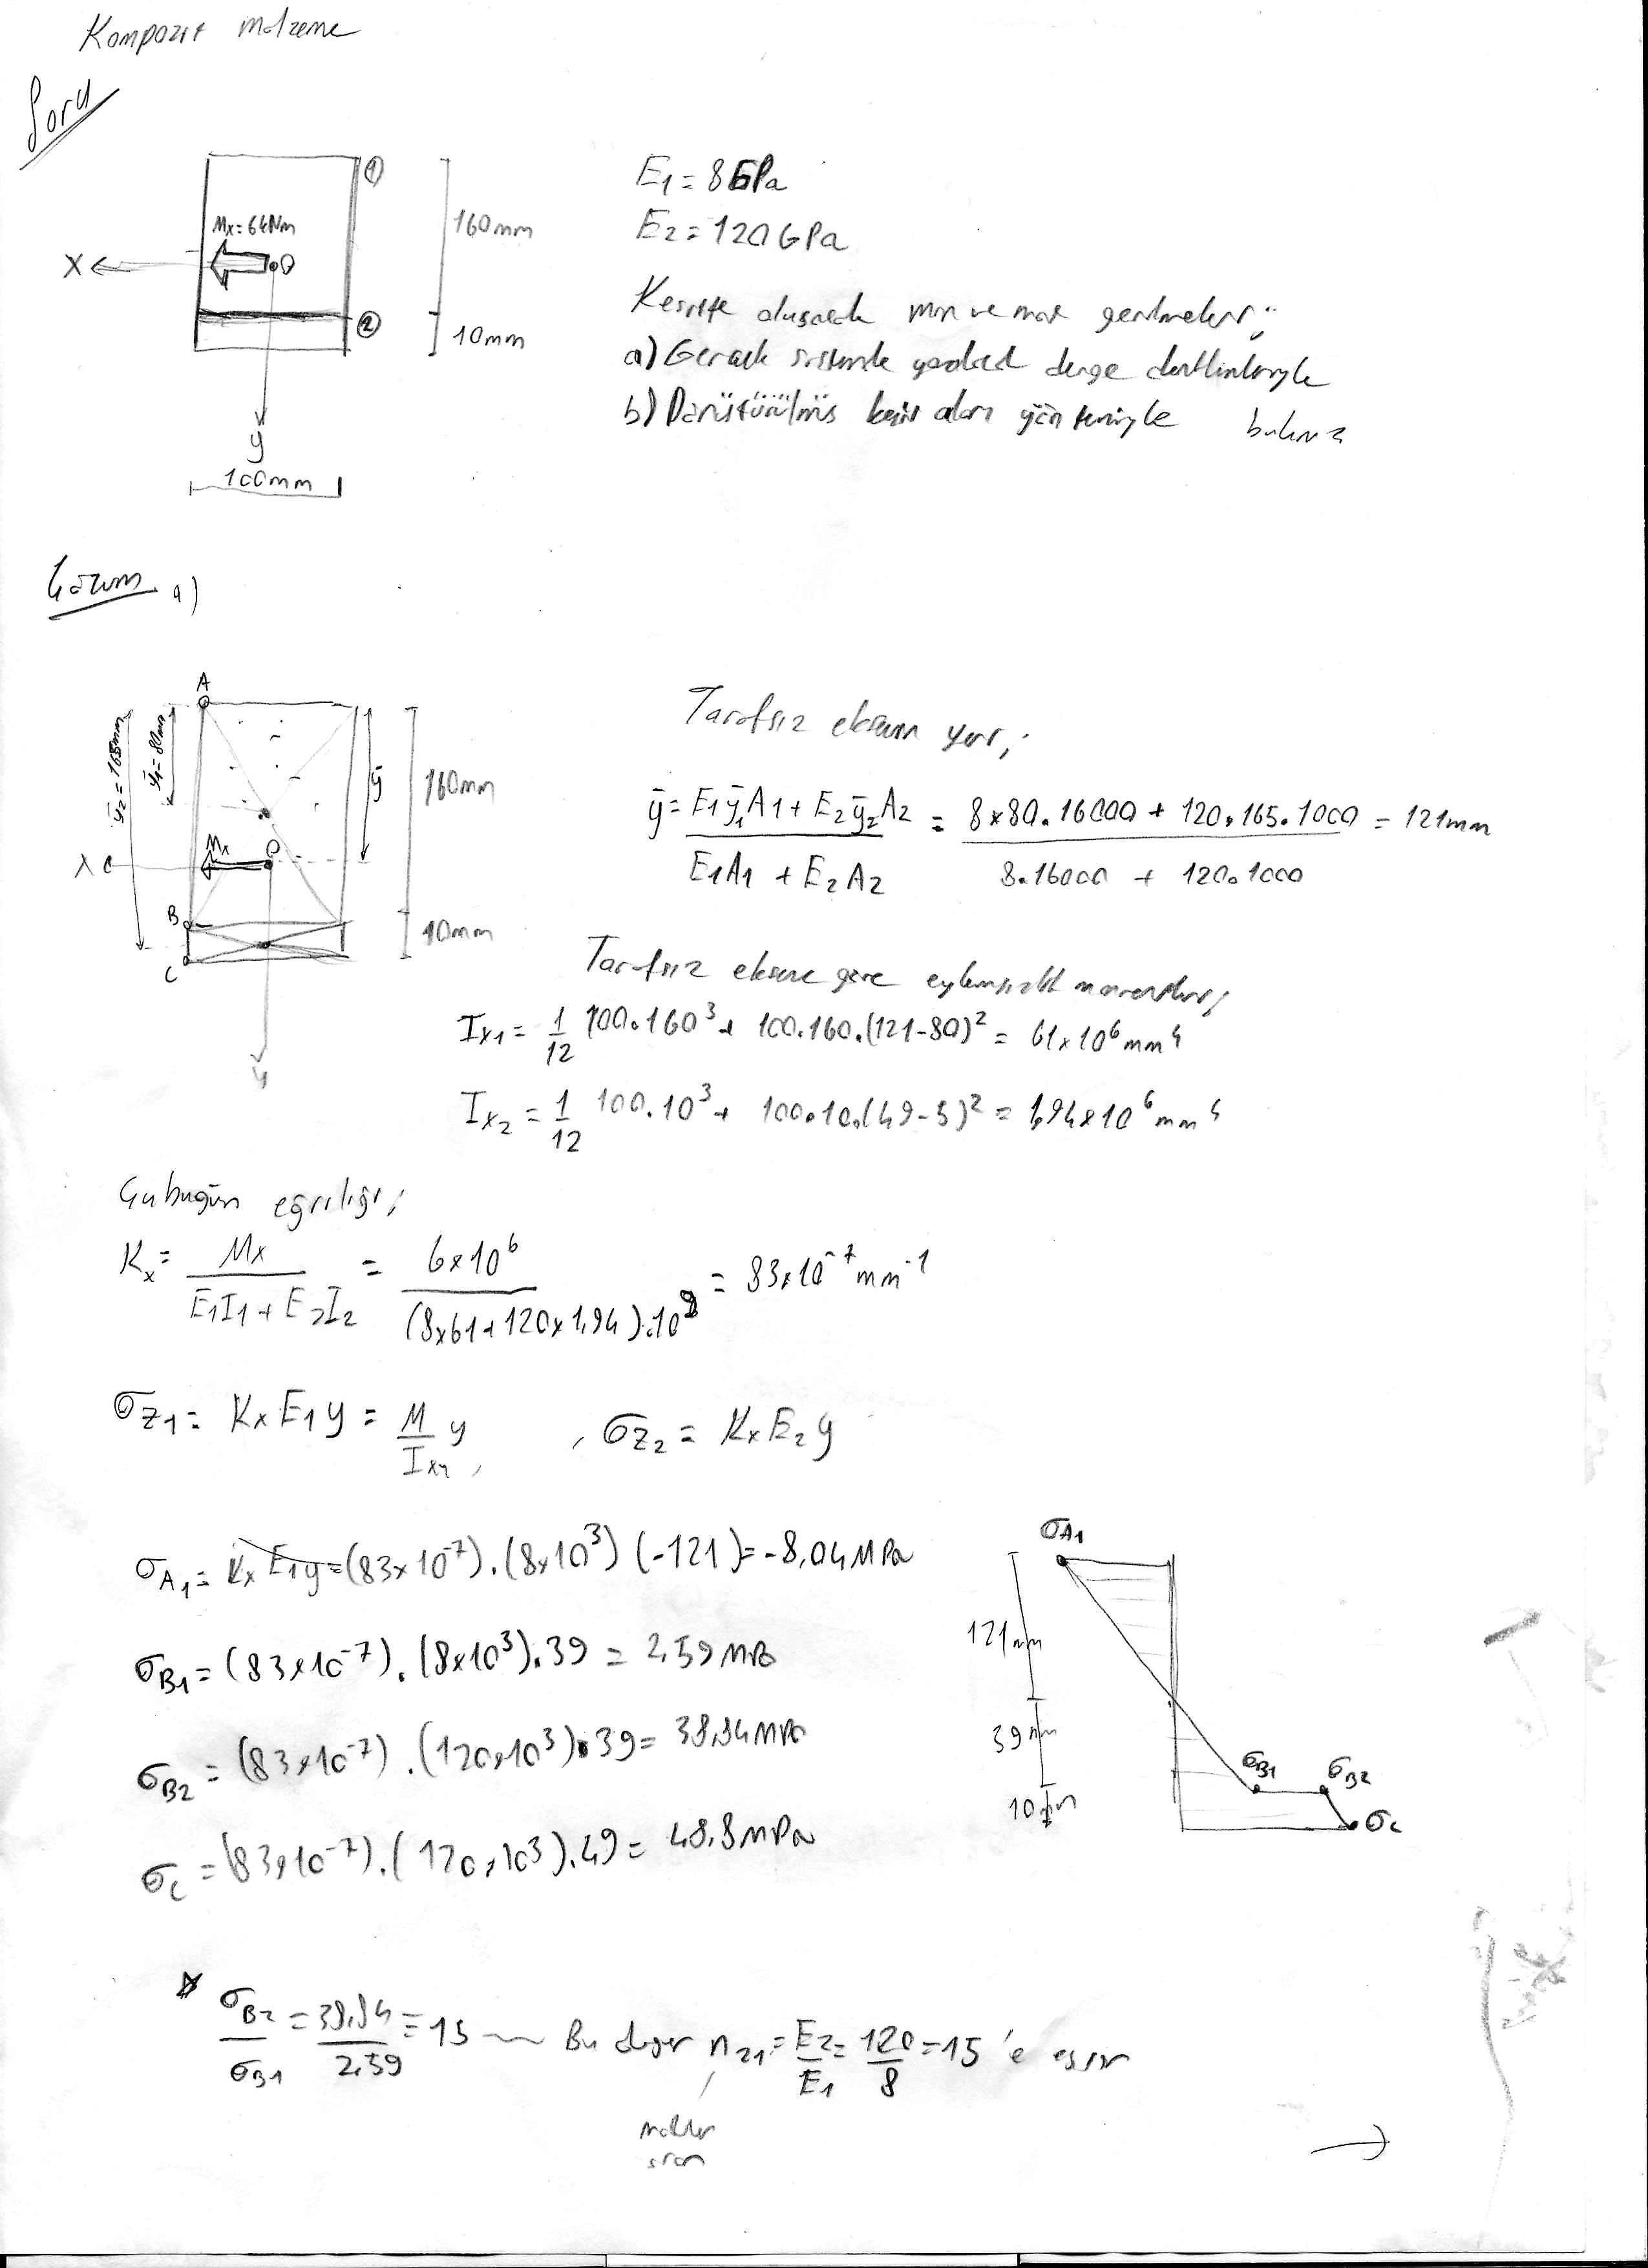 Kompozit malzeme
Soru
①
Mx=6kNm
O
X
160mm
②
10mm
y
100mm
E1=8GPa
E2=120GPa
Kesitte oluşacak min ve max gerilmeleri;
a) Gerçek sistemde yazılacak denge denklemleriyle
b) Dönüştürülmüş kesit alanı yöntemiyle bulunuz
Çözüm a)
A
ȳ2=165mm
ȳ1=80mm
ȳ
160mm
Mx
O
x
B
C
10mm
y
Tarafsız eksenin yeri;
ȳ = E1ȳ1A1 + E2ȳ2A2 / E1A1 + E2A2 = 8×80.16000 + 120.165.1000 / 8.16000 + 120.1000 = 121mm
Tarafsız eksene göre eylemsizlik momentleri;
Ix1 = 1/12 100.160³ + 100.160.(121-80)² = 61×10⁶ mm⁴
Ix2 = 1/12 100.10³ + 100.10.(49-5)² = 1,94×10⁶ mm⁴
Çubuğun eğriliği;
Kx = Mx / E1I1 + E2I2 = 6×10⁶ / (8×61+120×1,94).10⁹ = 83×10⁻⁷ mm⁻¹
σz1 = KxE1y = M/Ix1 y , σz2 = KxE2y
σA1 = KxE1y = (83×10⁻⁷).(8×10³)(-121) = -8,04MPa
σB1 = (83×10⁻⁷).(8×10³).39 = 2,59MPa
σB2 = (83×10⁻⁷).(120×10³).39 = 38,84MPa
σC = (83×10⁻⁷).(120×10³).49 = 48,8MPa
σA1
121mm
39mm
10mm
σB1
σB2
σC
σB2/σB1 = 38,84/2,59 = 15 Bu değer n21 = E2/E1 = 120/8 = 15'e eşittir
modüler
oran
→